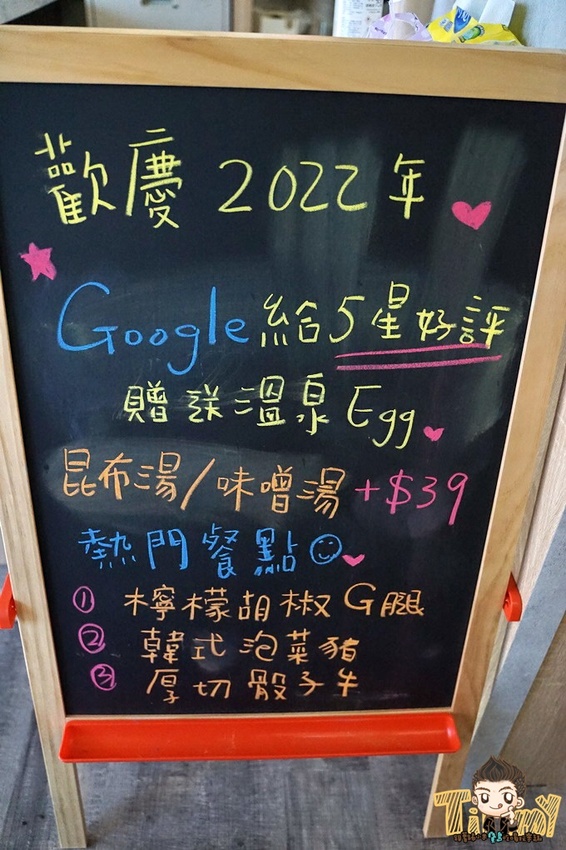 歡慶 2022年
Google 給5星好評
贈送溫泉Egg
昆布湯/味噌湯 +$39
熱門餐點
① 檸檬胡椒G腿
② 韓式泡菜豬
③ 厚切骰子牛
TimmY